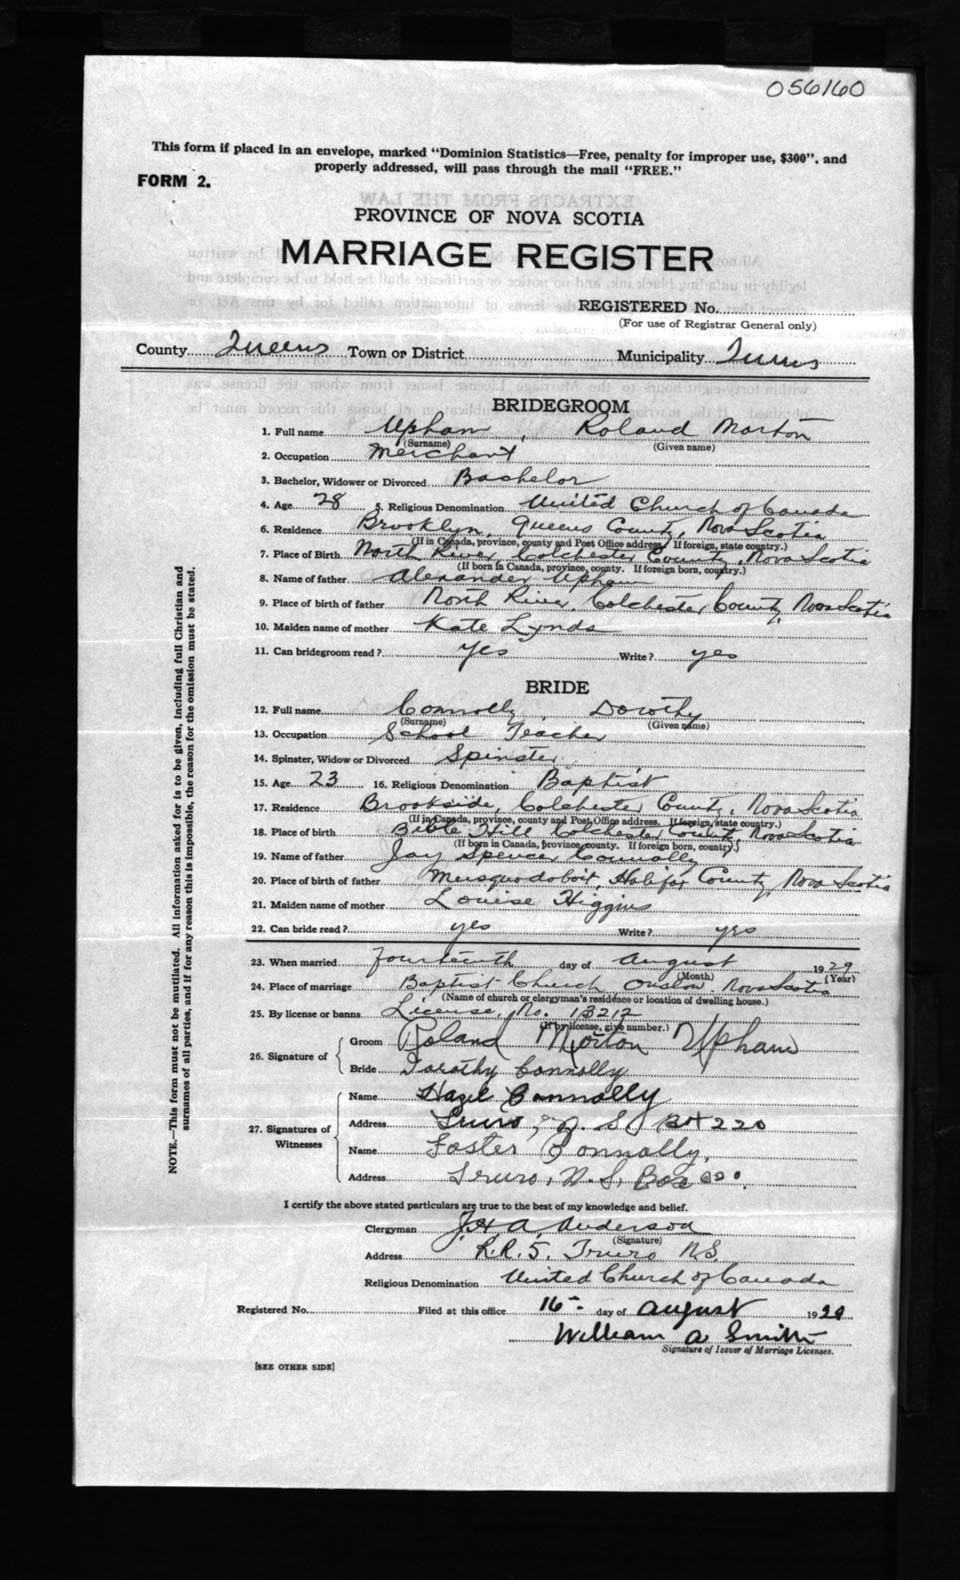 056160
This form if placed in an envelope, marked "Dominion Statistics—Free, penalty for improper use, $300", and
properly addressed, will pass through the mail "FREE."
FORM 2.
PROVINCE OF NOVA SCOTIA
MARRIAGE REGISTER
REGISTERED No.
(For use of Registrar General only)
County Queens Town or District Municipality Queens
BRIDEGROOM
1. Full name Upham, Roland Morton
(Surname) (Given name)
2. Occupation Merchant
3. Bachelor, Widower or Divorced Bachelor
4. Age 28 5. Religious Denomination United Church of Canada
6. Residence Brooklyn, Queens County, Nova Scotia
(If in Canada, province, county and Post Office address. If foreign, state country.)
7. Place of Birth North River, Colchester County, Nova Scotia
(If born in Canada, province, county. If foreign born, country.)
8. Name of father Alexander Upham
9. Place of birth of father North River, Colchester County, Nova Scotia
10. Maiden name of mother Kate Lynds
11. Can bridegroom read? yes Write? yes
BRIDE
12. Full name Connolly, Dorothy
(Surname) (Given name)
13. Occupation School Teacher
14. Spinster, Widow or Divorced Spinster
15. Age 23 16. Religious Denomination Baptist
17. Residence Brookside, Colchester County, Nova Scotia
(If in Canada, province, county and Post Office address. If foreign, state country.)
18. Place of birth Bible Hill Colchester County, Nova Scotia
(If born in Canada, province, county. If foreign born, country.)
19. Name of father Jay Spencer Connolly
20. Place of birth of father Musquodoboit, Halifax County, Nova Scotia
21. Maiden name of mother Louise Higgins
22. Can bride read? yes Write? yes
23. When married fourteenth day of August 1929
(Month) (Year)
24. Place of marriage Baptist Church Onslow Nova Scotia
(Name of church or clergyman's residence or location of dwelling house.)
25. By license or banns License, No. 13212
(If by license, give number.)
26. Signature of Groom Roland Morton Upham
Bride Dorothy Connolly
27. Signatures of Witnesses Name Hazel Connolly
Address Truro, N. S. Bx 220
Name Foster Connolly,
Address Truro, N. S. Box 220.
I certify the above stated particulars are true to the best of my knowledge and belief.
Clergyman J. H. A. Anderson
(Signature)
Address R.R. 5. Truro N.S.
Religious Denomination United Church of Canada
Registered No. Filed at this office 16 day of August 1929
William A Smith
Signature of Issuer of Marriage Licenses.
[SEE OTHER SIDE]
NOTE.—This form must not be mutilated. All information asked for is to be given, including full Christian and
surnames of all parties, and if for any reason this is impossible, the reason for the omission must be stated.